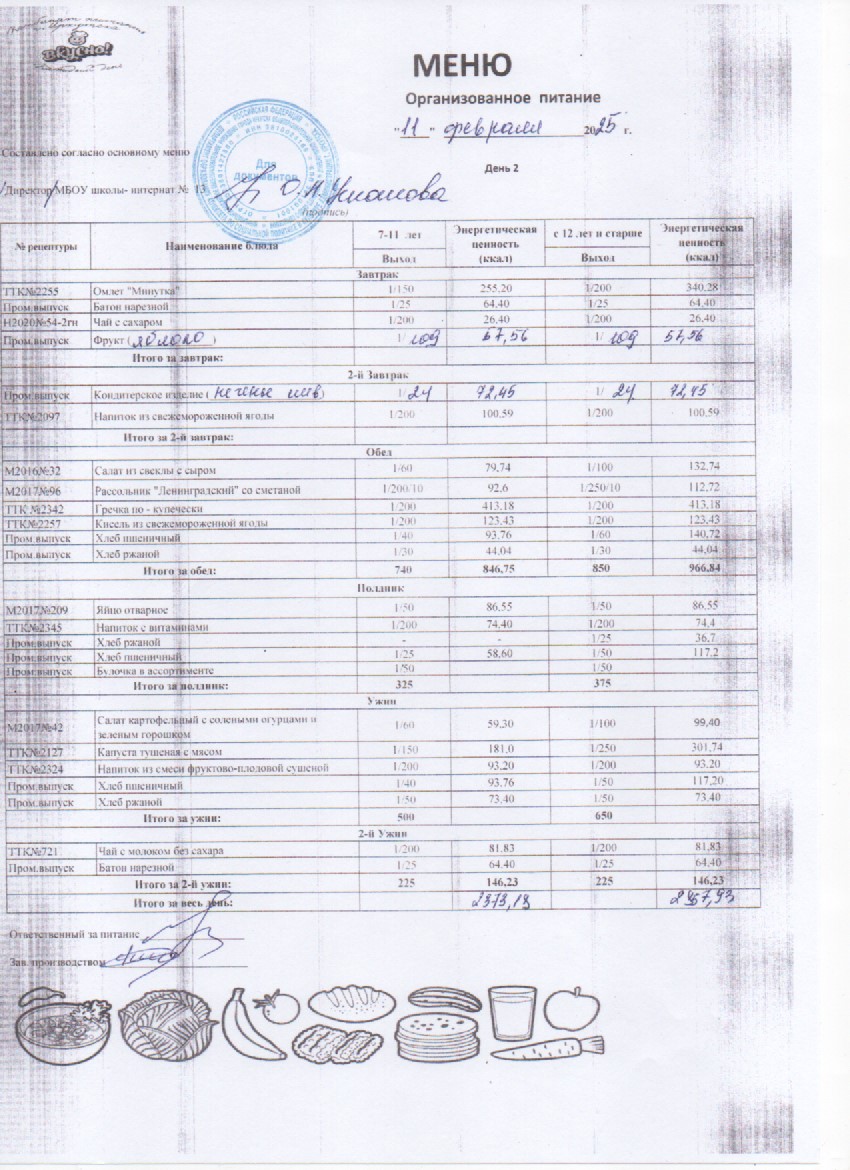 ВКУСНО!
МЕНЮ
Организованное питание
"11" февраля 2025 г.
Составлено согласно основному меню
День 2
Для документов
Директор МБОУ школы- интернат № 13
(подпись)
№ рецептуры Наименование блюда 7-11 лет Выход Энергетическая ценность (ккал) с 12 лет и старше Выход Энергетическая ценность (ккал)
Завтрак
ТТК№2255 Омлет "Минутка" 1/150 255,20 1/200 340,28
Пром.выпуск Батон нарезной 1/25 64,40 1/25 64,40
Н2020№54-2гн Чай с сахаром 1/200 26,40 1/200 26,40
Пром.выпуск Фрукт ( яблоко ) 1/ 109 57,56 1/ 109 57,56
Итого за завтрак:
2-й Завтрак
Пром.выпуск Кондитерское изделие ( печенье ) 1/ 24 72,45 1/ 24 72,45
ТТК№2097 Напиток из свежемороженной ягоды 1/200 100,59 1/200 100,59
Итого за 2-й завтрак:
Обед
М2016№32 Салат из свеклы с сыром 1/60 79,74 1/100 132,74
М2017№96 Рассольник "Ленинградский" со сметаной 1/200/10 92,6 1/250/10 112,72
ТТК №2342 Гречка по - купечески 1/200 413,18 1/200 413,18
ТТК№2257 Кисель из свежемороженной ягоды 1/200 123,43 1/200 123,43
Пром.выпуск Хлеб пшеничный 1/40 93,76 1/60 140,72
Пром.выпуск Хлеб ржаной 1/30 44,04 1/30 44,04
Итого за обед: 740 846,75 850 966,84
Полдник
М2017№209 Яйцо отварное 1/50 86,55 1/50 86,55
ТТК№2345 Напиток с витаминами 1/200 74,40 1/200 74,4
Пром.выпуск Хлеб ржаной - - 1/25 36,7
Пром.выпуск Хлеб пшеничный 1/25 58,60 1/50 117,2
Пром.выпуск Булочка в ассортименте 1/50 1/50
Итого за полдник: 325 375
Ужин
М2017№42 Салат картофельный с солеными огурцами и зеленым горошком 1/60 59,30 1/100 99,40
ТТК№2127 Капуста тушеная с мясом 1/150 181,0 1/250 301,74
ТТК№2324 Напиток из смеси фруктово-плодовой сушеной 1/200 93,20 1/200 93,20
Пром.выпуск Хлеб пшеничный 1/40 93,76 1/50 117,20
Пром.выпуск Хлеб ржаной 1/50 73,40 1/50 73,40
Итого за ужин: 500 650
2-й Ужин
ТТК№721 Чай с молоком без сахара 1/200 81,83 1/200 81,83
Пром.выпуск Батон нарезной 1/25 64,40 1/25 64,40
Итого за 2-й ужин: 225 146,23 225 146,23
Итого за весь день: 2373,13
Ответственный за питание
Зав. производством